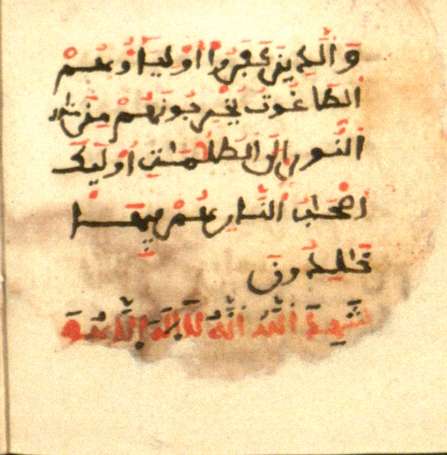 والذين كفروا أولياؤهم
الطاغوت يخرجونهم من
النور إلى الظلمت أوليك
أصحب النار هم فيها
خلدون
شهد الله أنه لا إله إلا هو